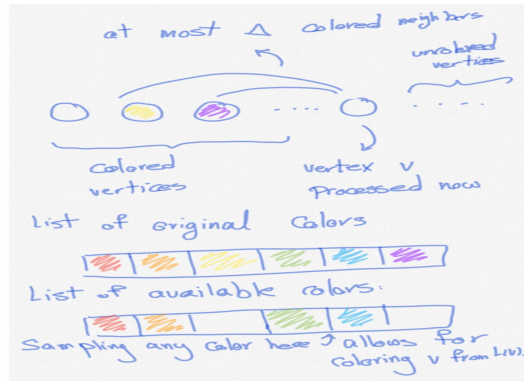 at most Δ colored neighbors
uncolored
vertices
Colored
vertices
vertex v
Processed now
List of original Colors
List of available colors:
Sampling any Color here ↑ allows for
Coloring v from L(v).